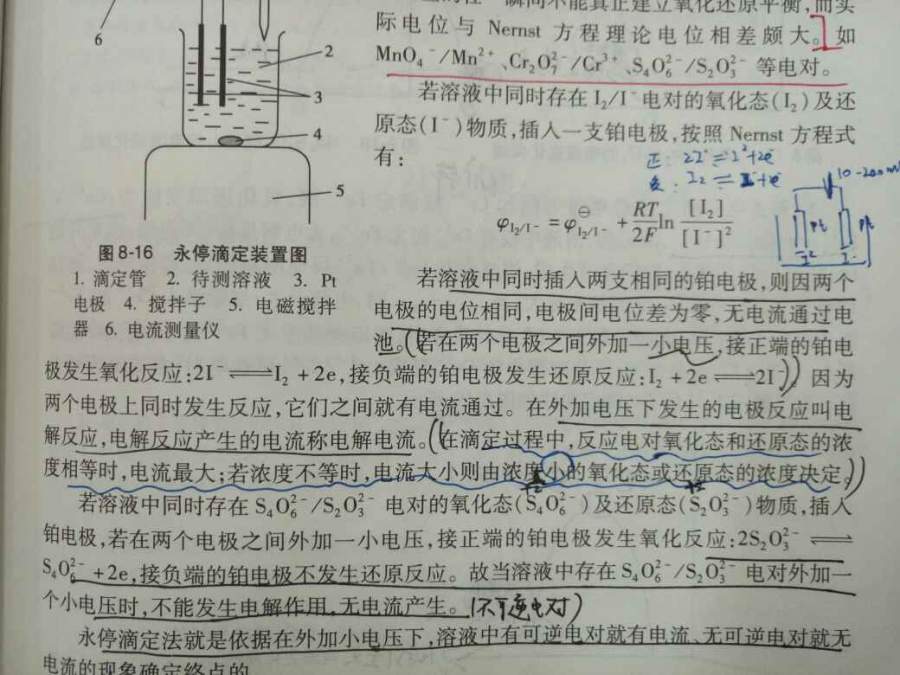 瞬间不能真正建立氧化还原平衡,而实
际电位与 Nernst 方程理论电位相差颇大。如
MnO₄⁻/Mn²⁺、Cr₂O₇²⁻/Cr³⁺、S₄O₆²⁻/S₂O₃²⁻ 等电对。
若溶液中同时存在 I₂/I⁻电对的氧化态(I₂)及还
原态(I⁻)物质,插入一支铂电极,按照 Nernst 方程式
有:
正: 2I⁻ ⇌ I²+2e
I₂ ⇌ I+e
φI₂/I⁻ = φ⊖I₂/I⁻ + RT/2F ln [I₂]/[I⁻]²
Pt
Pt
6
2
3
4
5
图 8-16 永停滴定装置图
1. 滴定管 2. 待测溶液 3. Pt
电极 4. 搅拌子 5. 电磁搅拌
器 6. 电流测量仪
若溶液中同时插入两支相同的铂电极,则因两个
电极的电位相同,电极间电位差为零,无电流通过电
池。若在两个电极之间外加一小电压,接正端的铂电
极发生氧化反应:2I⁻⇌I₂ + 2e,接负端的铂电极发生还原反应:I₂ + 2e⇌2I⁻。因为
两个电极上同时发生反应,它们之间就有电流通过。在外加电压下发生的电极反应叫电
解反应,电解反应产生的电流称电解电流。在滴定过程中,反应电对氧化态和还原态的浓
度相等时,电流最大;若浓度不等时,电流大小则由浓度小的氧化态或还原态的浓度决定。
若溶液中同时存在 S₄O₆²⁻/S₂O₃²⁻ 电对的氧化态(S₄O₆²⁻)及还原态(S₂O₃²⁻)物质,插入
铂电极,若在两个电极之间外加一小电压,接正端的铂电极发生氧化反应:2S₂O₃²⁻ ⇌
S₄O₆²⁻ +2e,接负端的铂电极不发生还原反应。故当溶液中存在 S₄O₆²⁻/S₂O₃²⁻ 电对外加一
个小电压时,不能发生电解作用,无电流产生。(不可逆电对)
永停滴定法就是依据在外加小电压下,溶液中有可逆电对就有电流、无可逆电对就无
电流的现象确定终点的